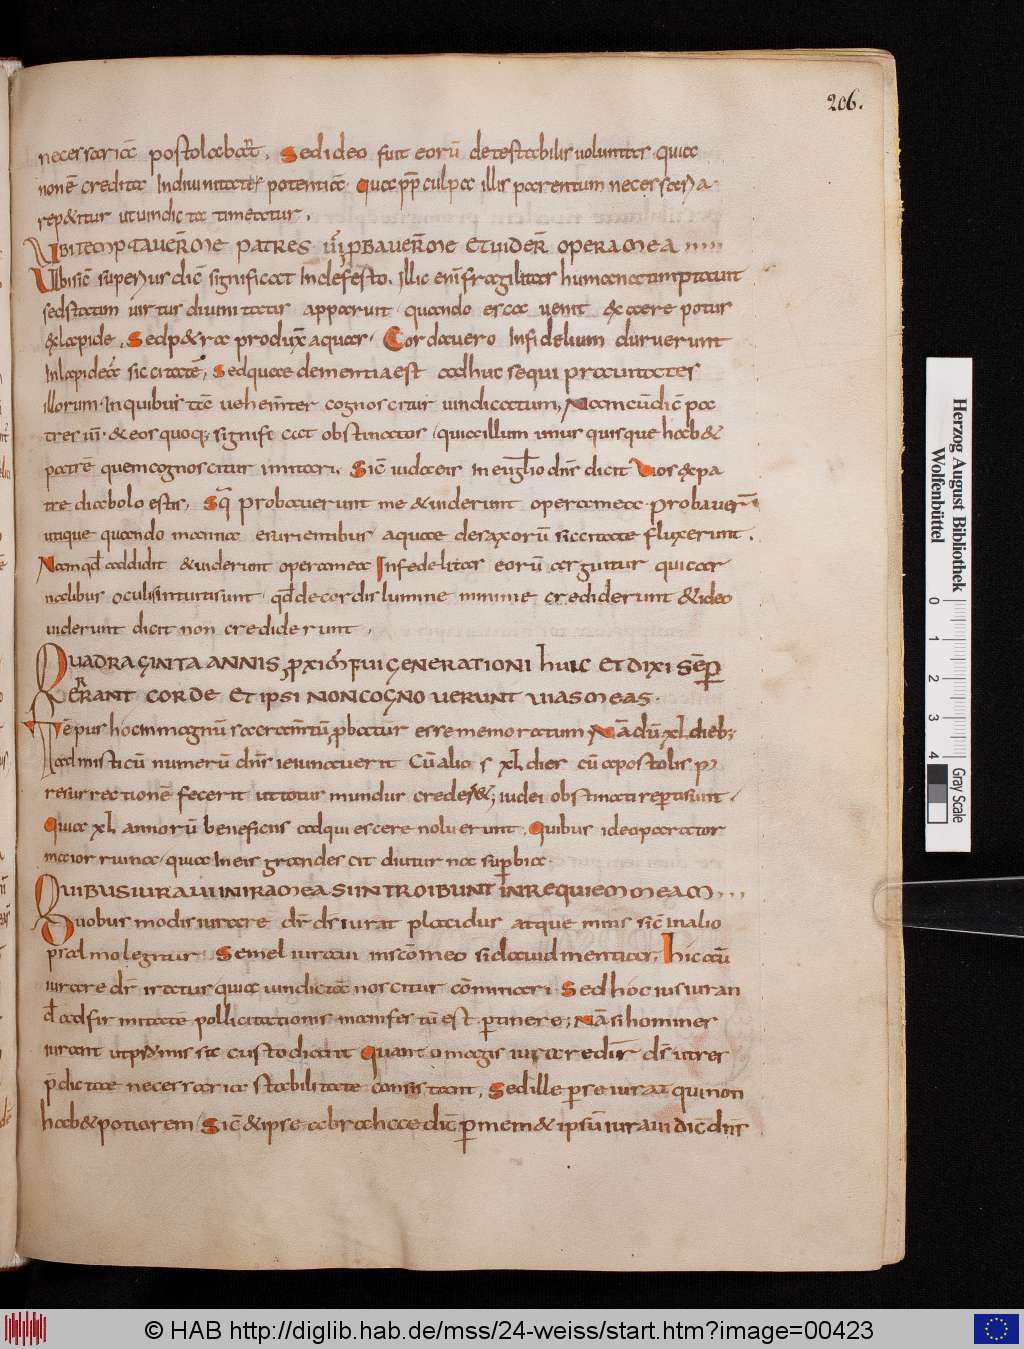 206.
necessariā postolabat. Sed ideo fuit eorū detestabilis voluntas quia
non ē credita In divinitatē potentia. Quae ꝓp culpa illis parentum necessaria
repetitur ut vindicta timeatur.
UBI TEMPTAVER̄ ME PATRES VR̄I PROBAVER̄ ME ET VIDER̄ OPERA MEA
Ubi sic superius dic significat In deserto. illic enī fragilitas humana temptavit
sed statim virtus divinitatis apparuit quando esca venit & aere potus
& lapide. Sed petra produxit aquas. Corda vero Infidelium duruerunt
In lapideā siccitatē. Sed quae dementia est adhuc sequi pravitates
illorum. In quibus tāc vehemter cognoscitur vindicatum, Nam cū dic̄ pa
tres vr̄i. & eos quoq; significat obstinatos, quia illum unus quisque hab&
patrē quem cognoscitur imitari, Sic iudaeis in euglio dn̄s dicit Vos & pa
tre diabolo estis, Sq probaverunt me & viderunt opera mea. Probaver̄
utique quando manna esurientibus aquae de saxorū siccitate fluxerunt.
Nam qd addidit & viderunt opera mea Infedelitas eorū arguitur qui car
nalibus oculis intuiti sunt. qd de cordis lumine minime crediderunt & ideo
viderunt dicit non crediderunt.
QUADRAGINTA ANNIS PROXIM FUI GENERATIONI huic ET DIXI SEMP̄
ERRANT CORDE ET IPSI NON COGNOVERUNT VIAS MEAS.
Tēpus hoc in magnū sacramtū probatur esse memoratum Nā dū xl dieb;
ad misticū numerū dn̄s ieiunaverit Cū alios xl dies cū apostolis p
resurrectionē fecerit ut totus mundus crederet; iudei obstinati reperti sunt.
Quia xl annorū beneficiis adquiescere noluerunt. Quibus ideo paratur
maior ruina, quia In eis grandescit diuturna superbia.
QUIBUS IURAVI IN IRA MEA SI INTROIBUNT IN REQUIEM MEAM
Duobus modis iurare dr̄ ds iurat placidus atque minis sic in alio
psalmo legitur Semel iuravi in scō meo si david mentiar, hic aū
iurare dr̄ iratus quia vindicta noscitur cōminari Sed hoc ius iuran
d̄ ad firmitatē pollicitationis manifestū est ptinere; Nā si homines
iurant ut promissa custodiant Quanto magis iurare dicit ds ut res
p̄dictae necessaria stabilitate consistant, Sed ille per se iurat qui non
hab& potiorem Sic & ipse abrahae dic̄ p mem& ipsū iuravi dic̄ dn̄s
Herzog August Bibliothek
Wolfenbüttel
0 1 2 3 4
Gray Scale
© HAB http://diglib.hab.de/mss/24-weiss/start.htm?image=00423